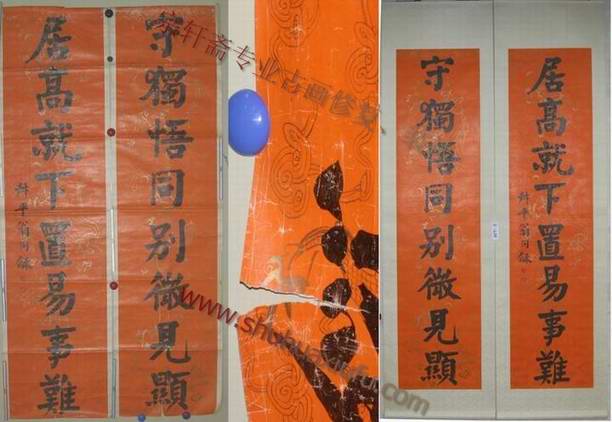 守獨悟同別微見顯
居髙就下置易事難
叔平翁同龢
轩斋专业古画修复
www.shuhuaxiufu.com
居髙就下置易事難
叔平翁同龢
守獨悟同別微見顯